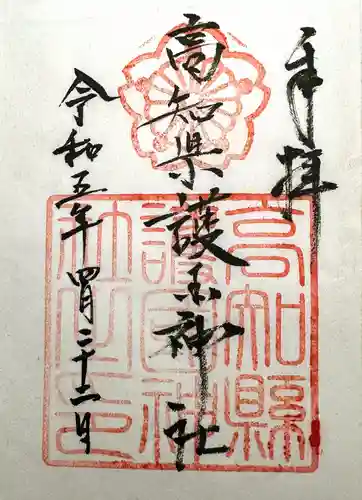 奉拝
高知県護国神社
令和五年 四月二十二日
高知縣
護國神
社之印